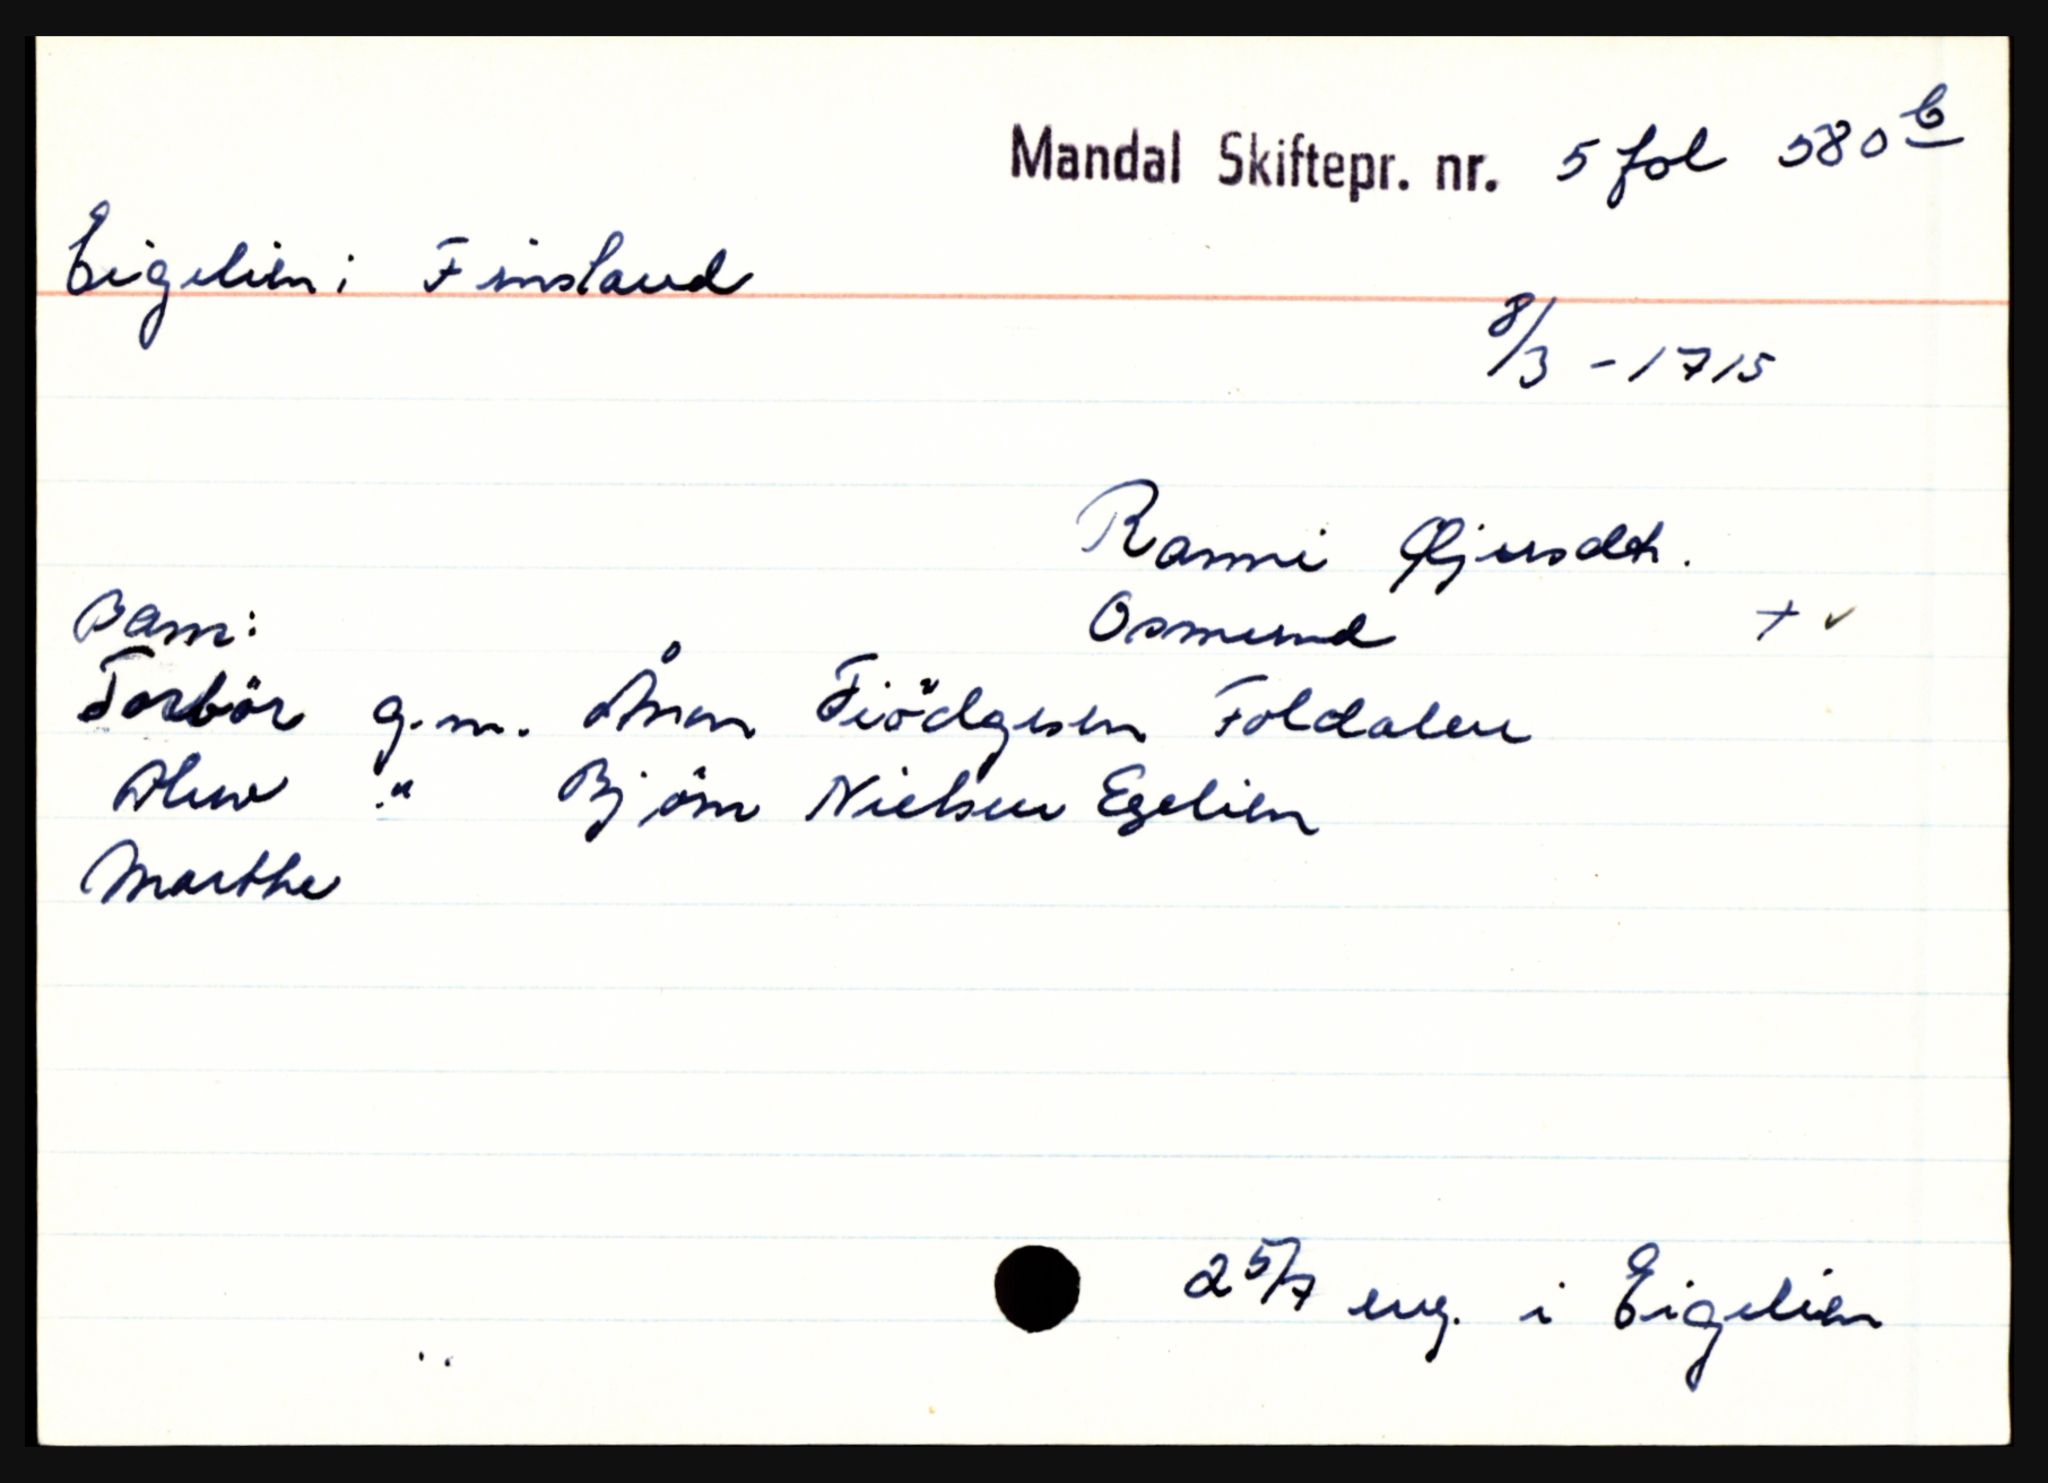 Mandal Skiftepr. nr. 5 fol 580 b
Eigelien i Finsland
8/3 - 1715
Ranni Øjusdtr.
Barn: Osmund + ✓
Torbör g.m. Ånon Tiödgesen Foldalen
" Bjørn Nielsen Egelien
Marthe
2 5/7 eng. i Eigelien